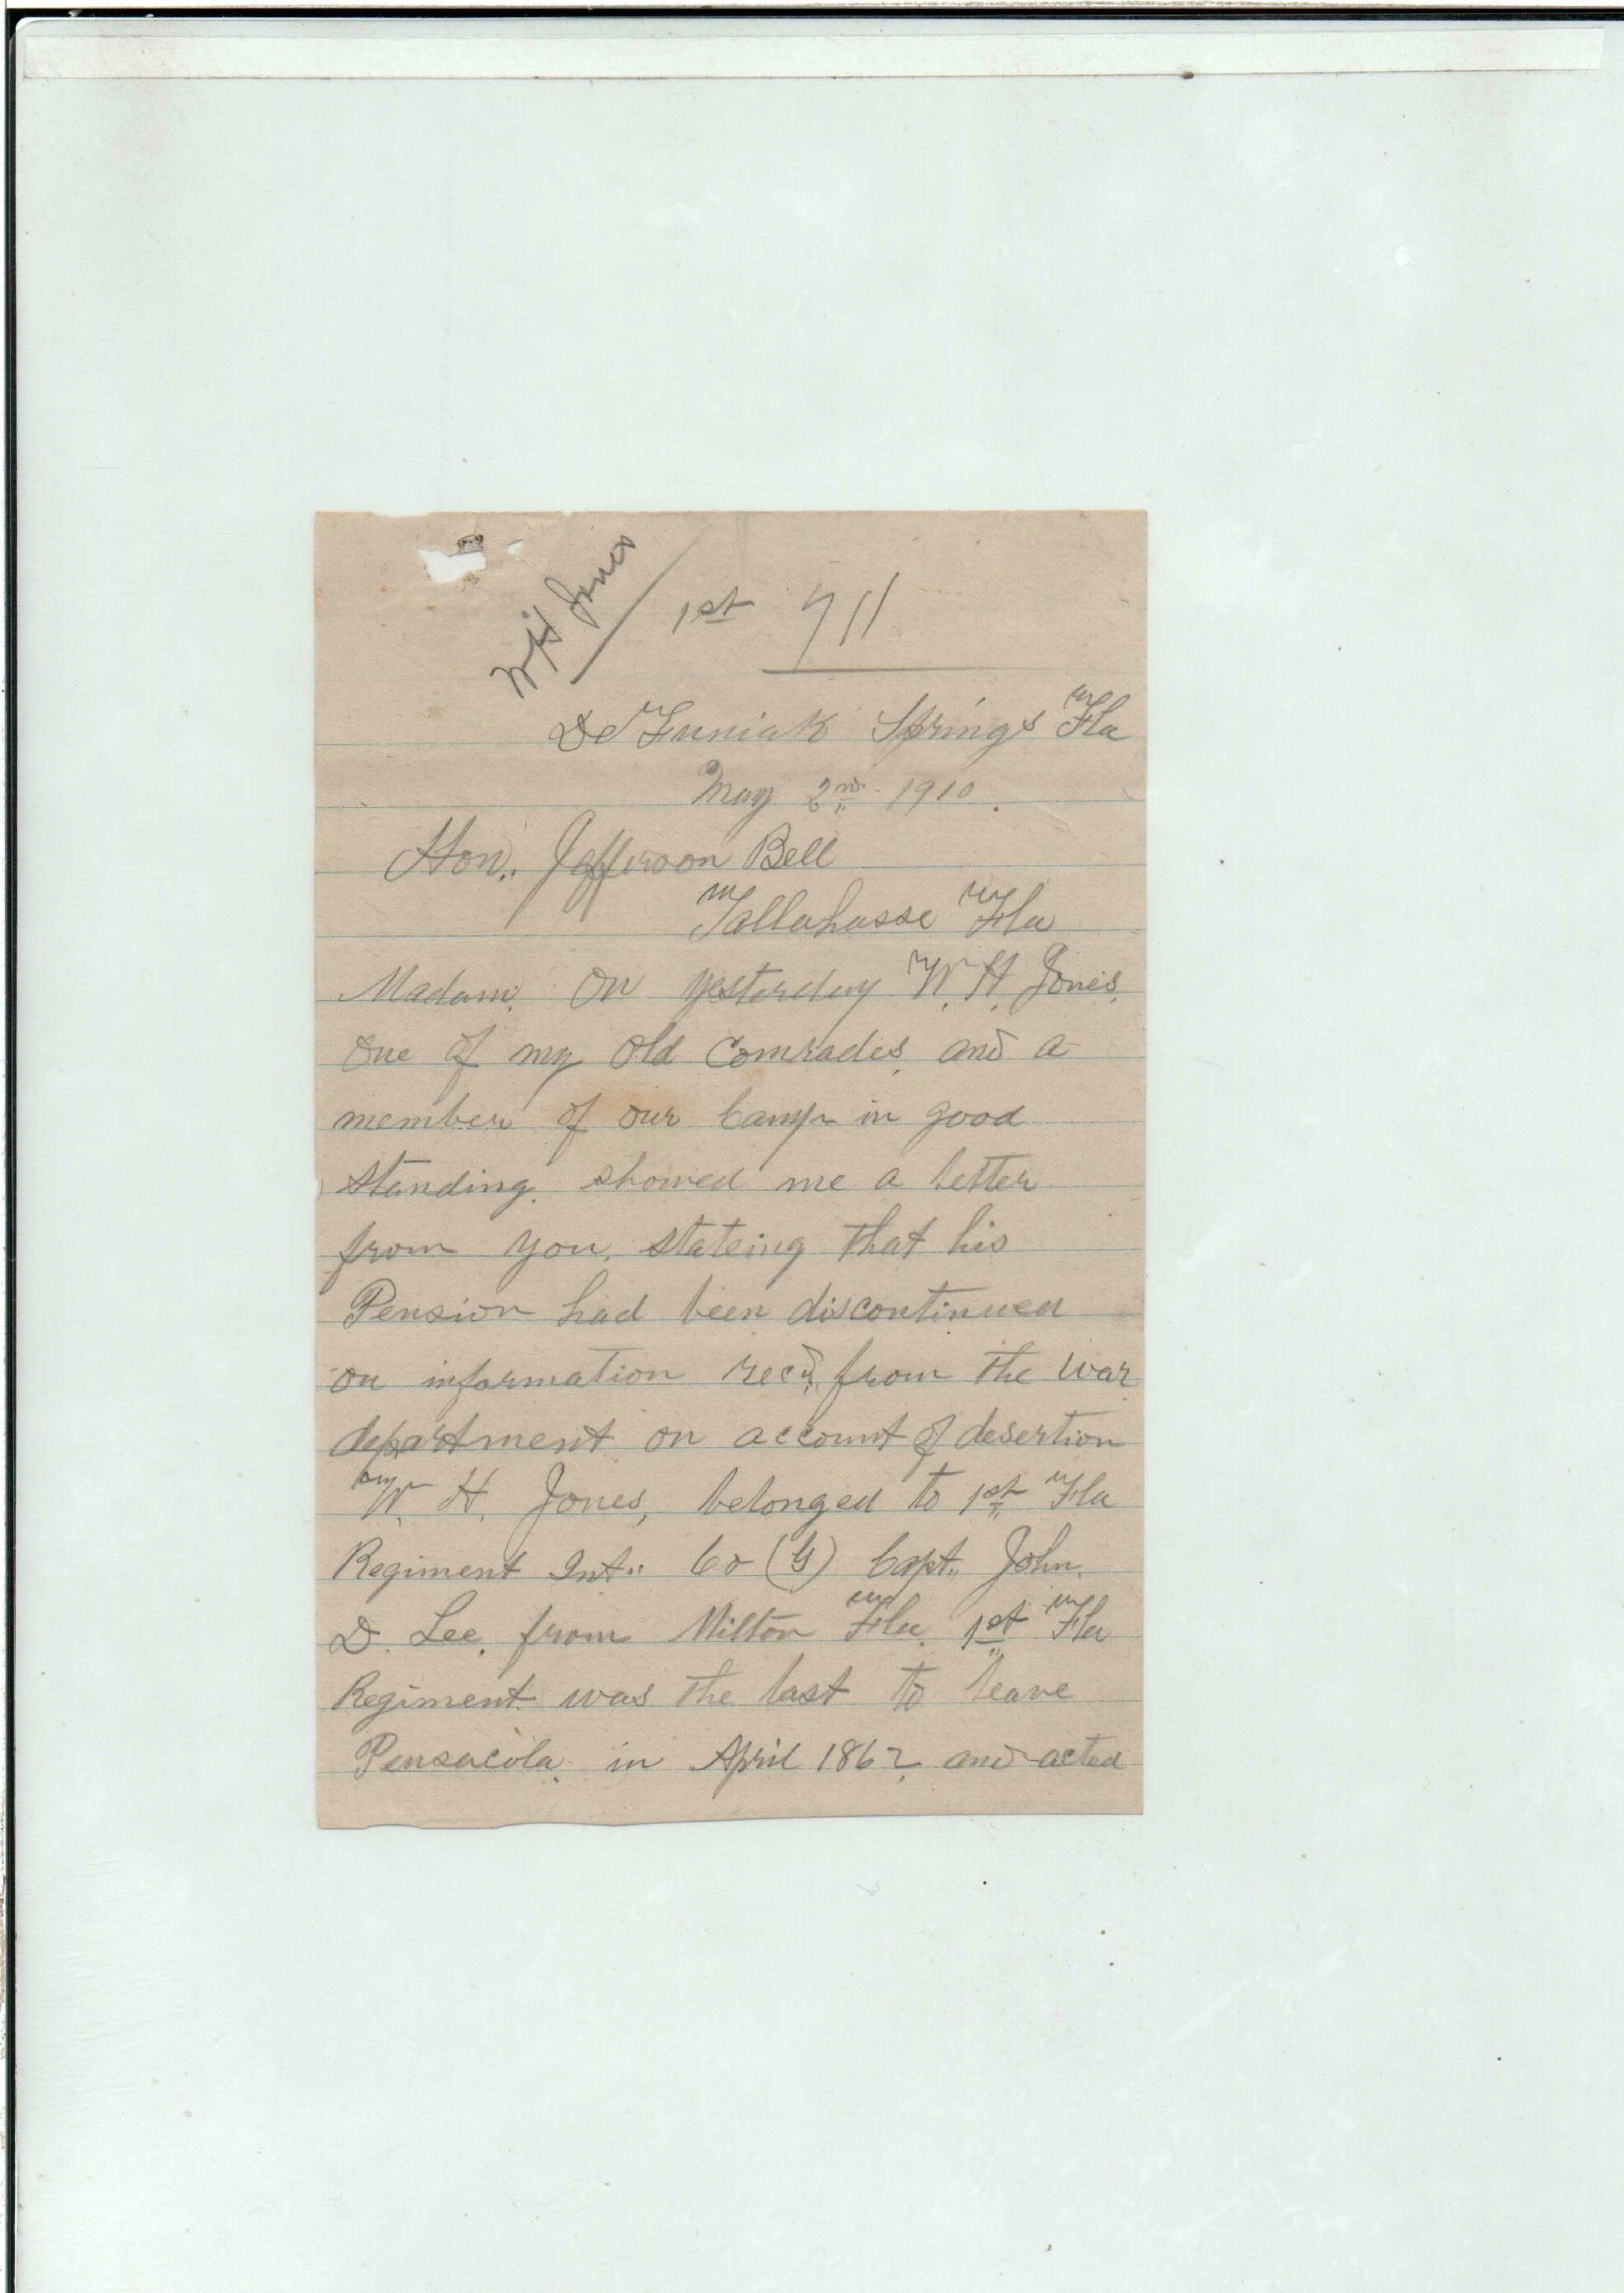 W H Jones
1st 911
De Funiak Springs Fla
May 2nd 1910.
Hon. Jefferson Bell
Tallahasse Fla
Madam. On yesterday W. H. Jones,
one of my old Comrades, and a
member of our Camp in good
standing, showed me a letter
from you, stateing that his
Pension had been discontinued
on information recd, from the war
department on account of desertion
W. H. Jones, belonged to 1st Fla
Regiment Inf.. Co (G) Capt. John.
D. Lee, from Milton Fla. 1st Fla
Regiment was the last to leave
Pensacola, in April 1862, and acted